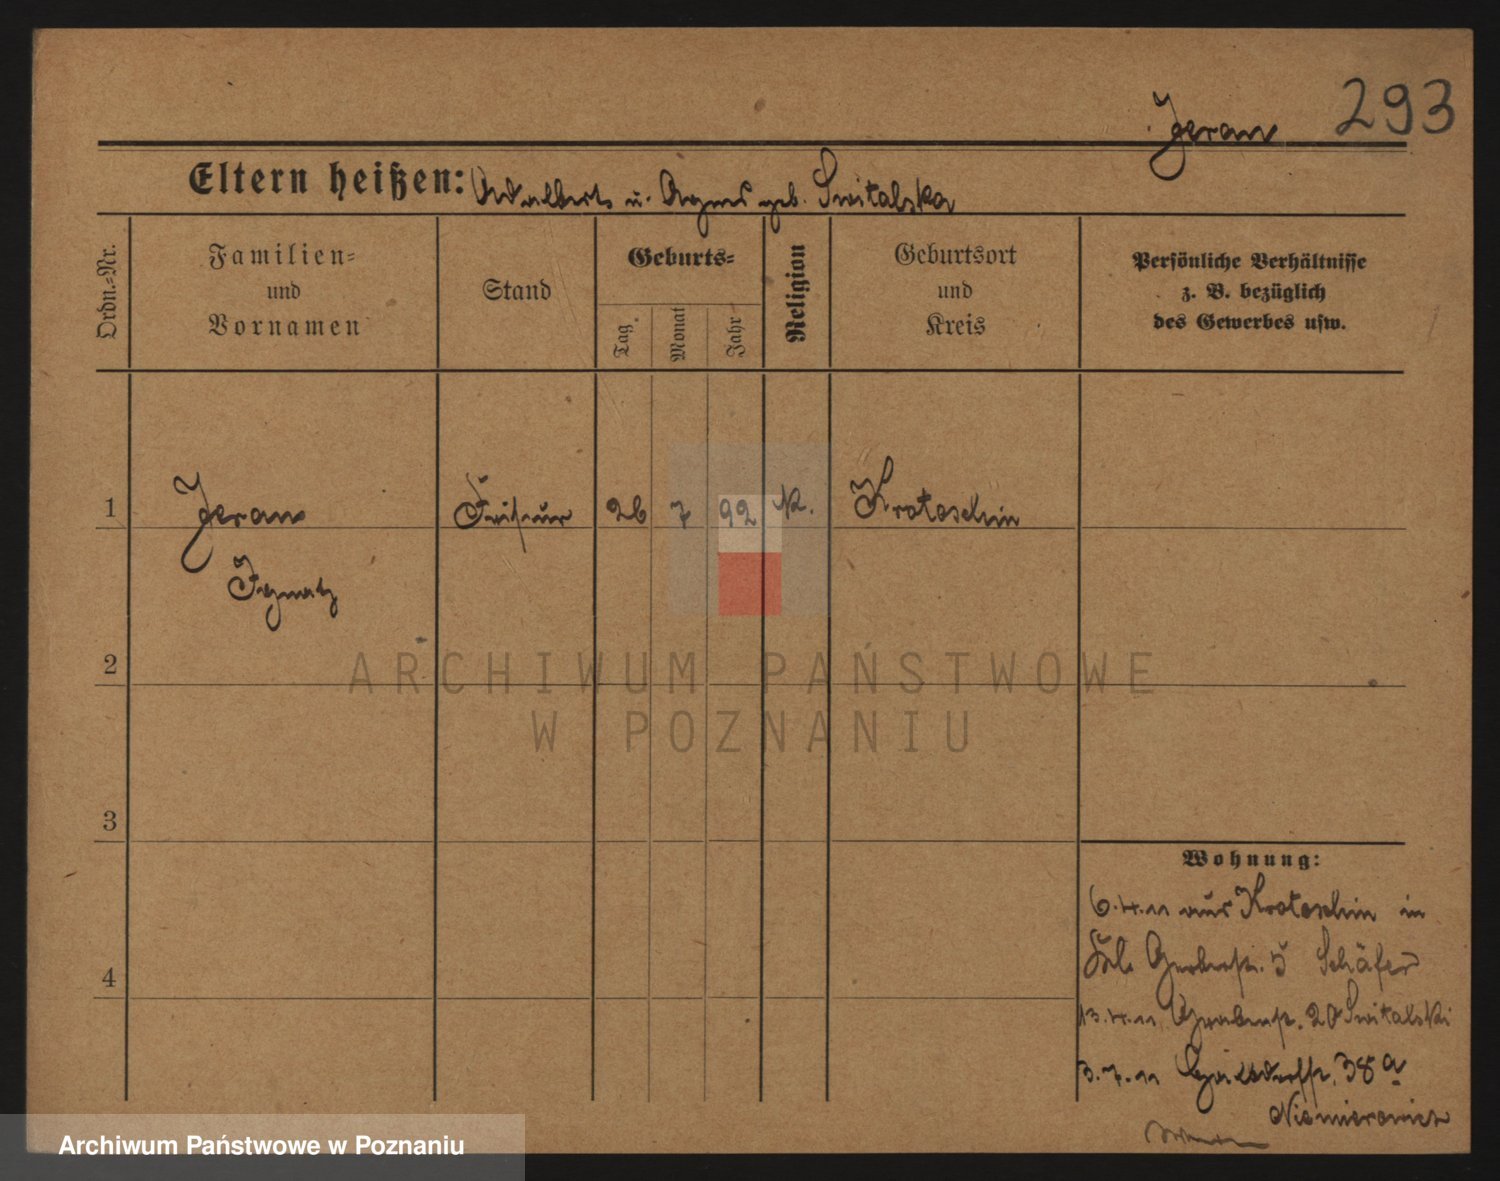 Jeran
293
Eltern heißen: Adalbert u. Agnes geb. Switalska
Ordn.-Nr.
Familien-
und
Vornamen
Stand
Geburts-
Tag
Monat
Jahr
Religion
Geburtsort
und
Kreis
Persönliche Verhältnisse
z. B. bezüglich
des Gewerbes usw.
1 Jeran Friseur 26 7 92 K. Krotoschin
Ignatz
2
3
4
Wohnung:
6.4.11 aus Krotoschin in
5 Schäfer
13.4.11 20 Switalski
3.7.11 38a
Niemierowicz
ARCHIWUM PAŃSTWOWE
W POZNANIU
Archiwum Państwowe w Poznaniu